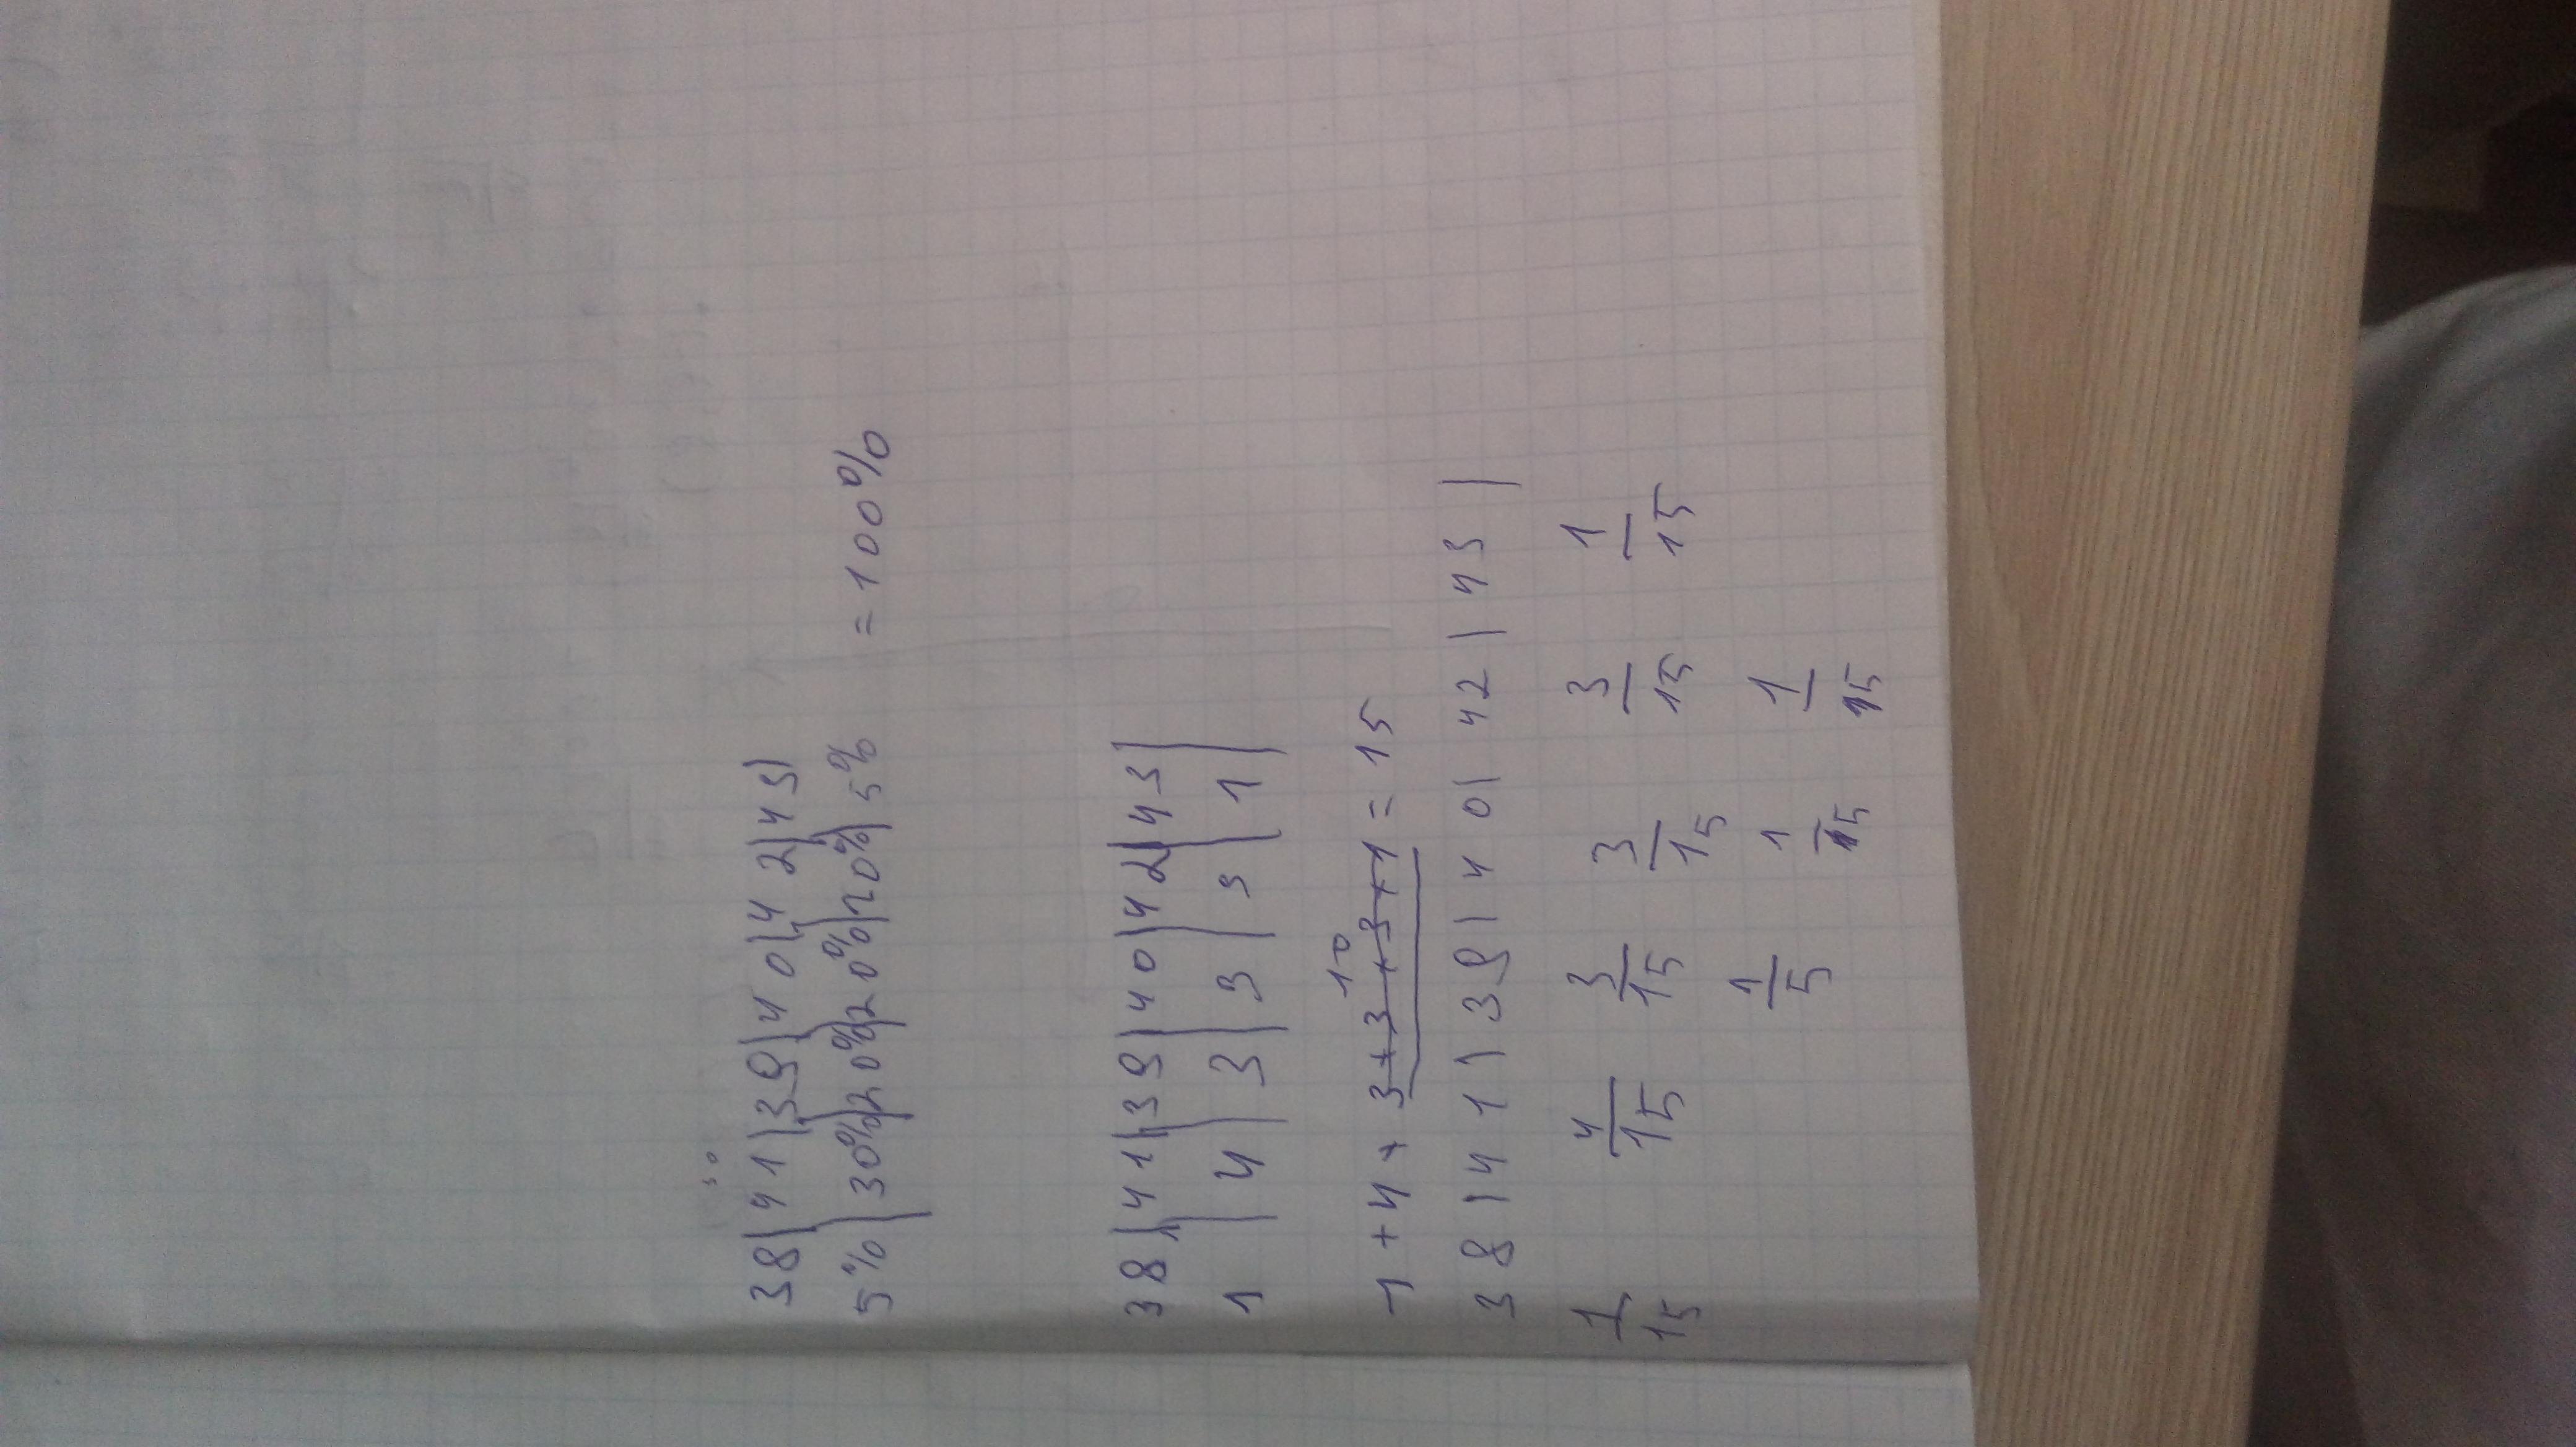 38 | 41 | 39 | 40 | 42 | 43 |
5% | 30% | 20% | 20% | 20% | 5% = 100%
38 | 41 | 39 | 40 | 42 | 43 |
1 | 4 | 3 | 3 | 3 | 1 |
10
1 + 4 + 3+3+3+1 = 15
38 | 41 | 39 | 40 | 42 | 43 |
1/15 4/15 3/15 3/15 3/15 1/15
1/5 1/15 1/15